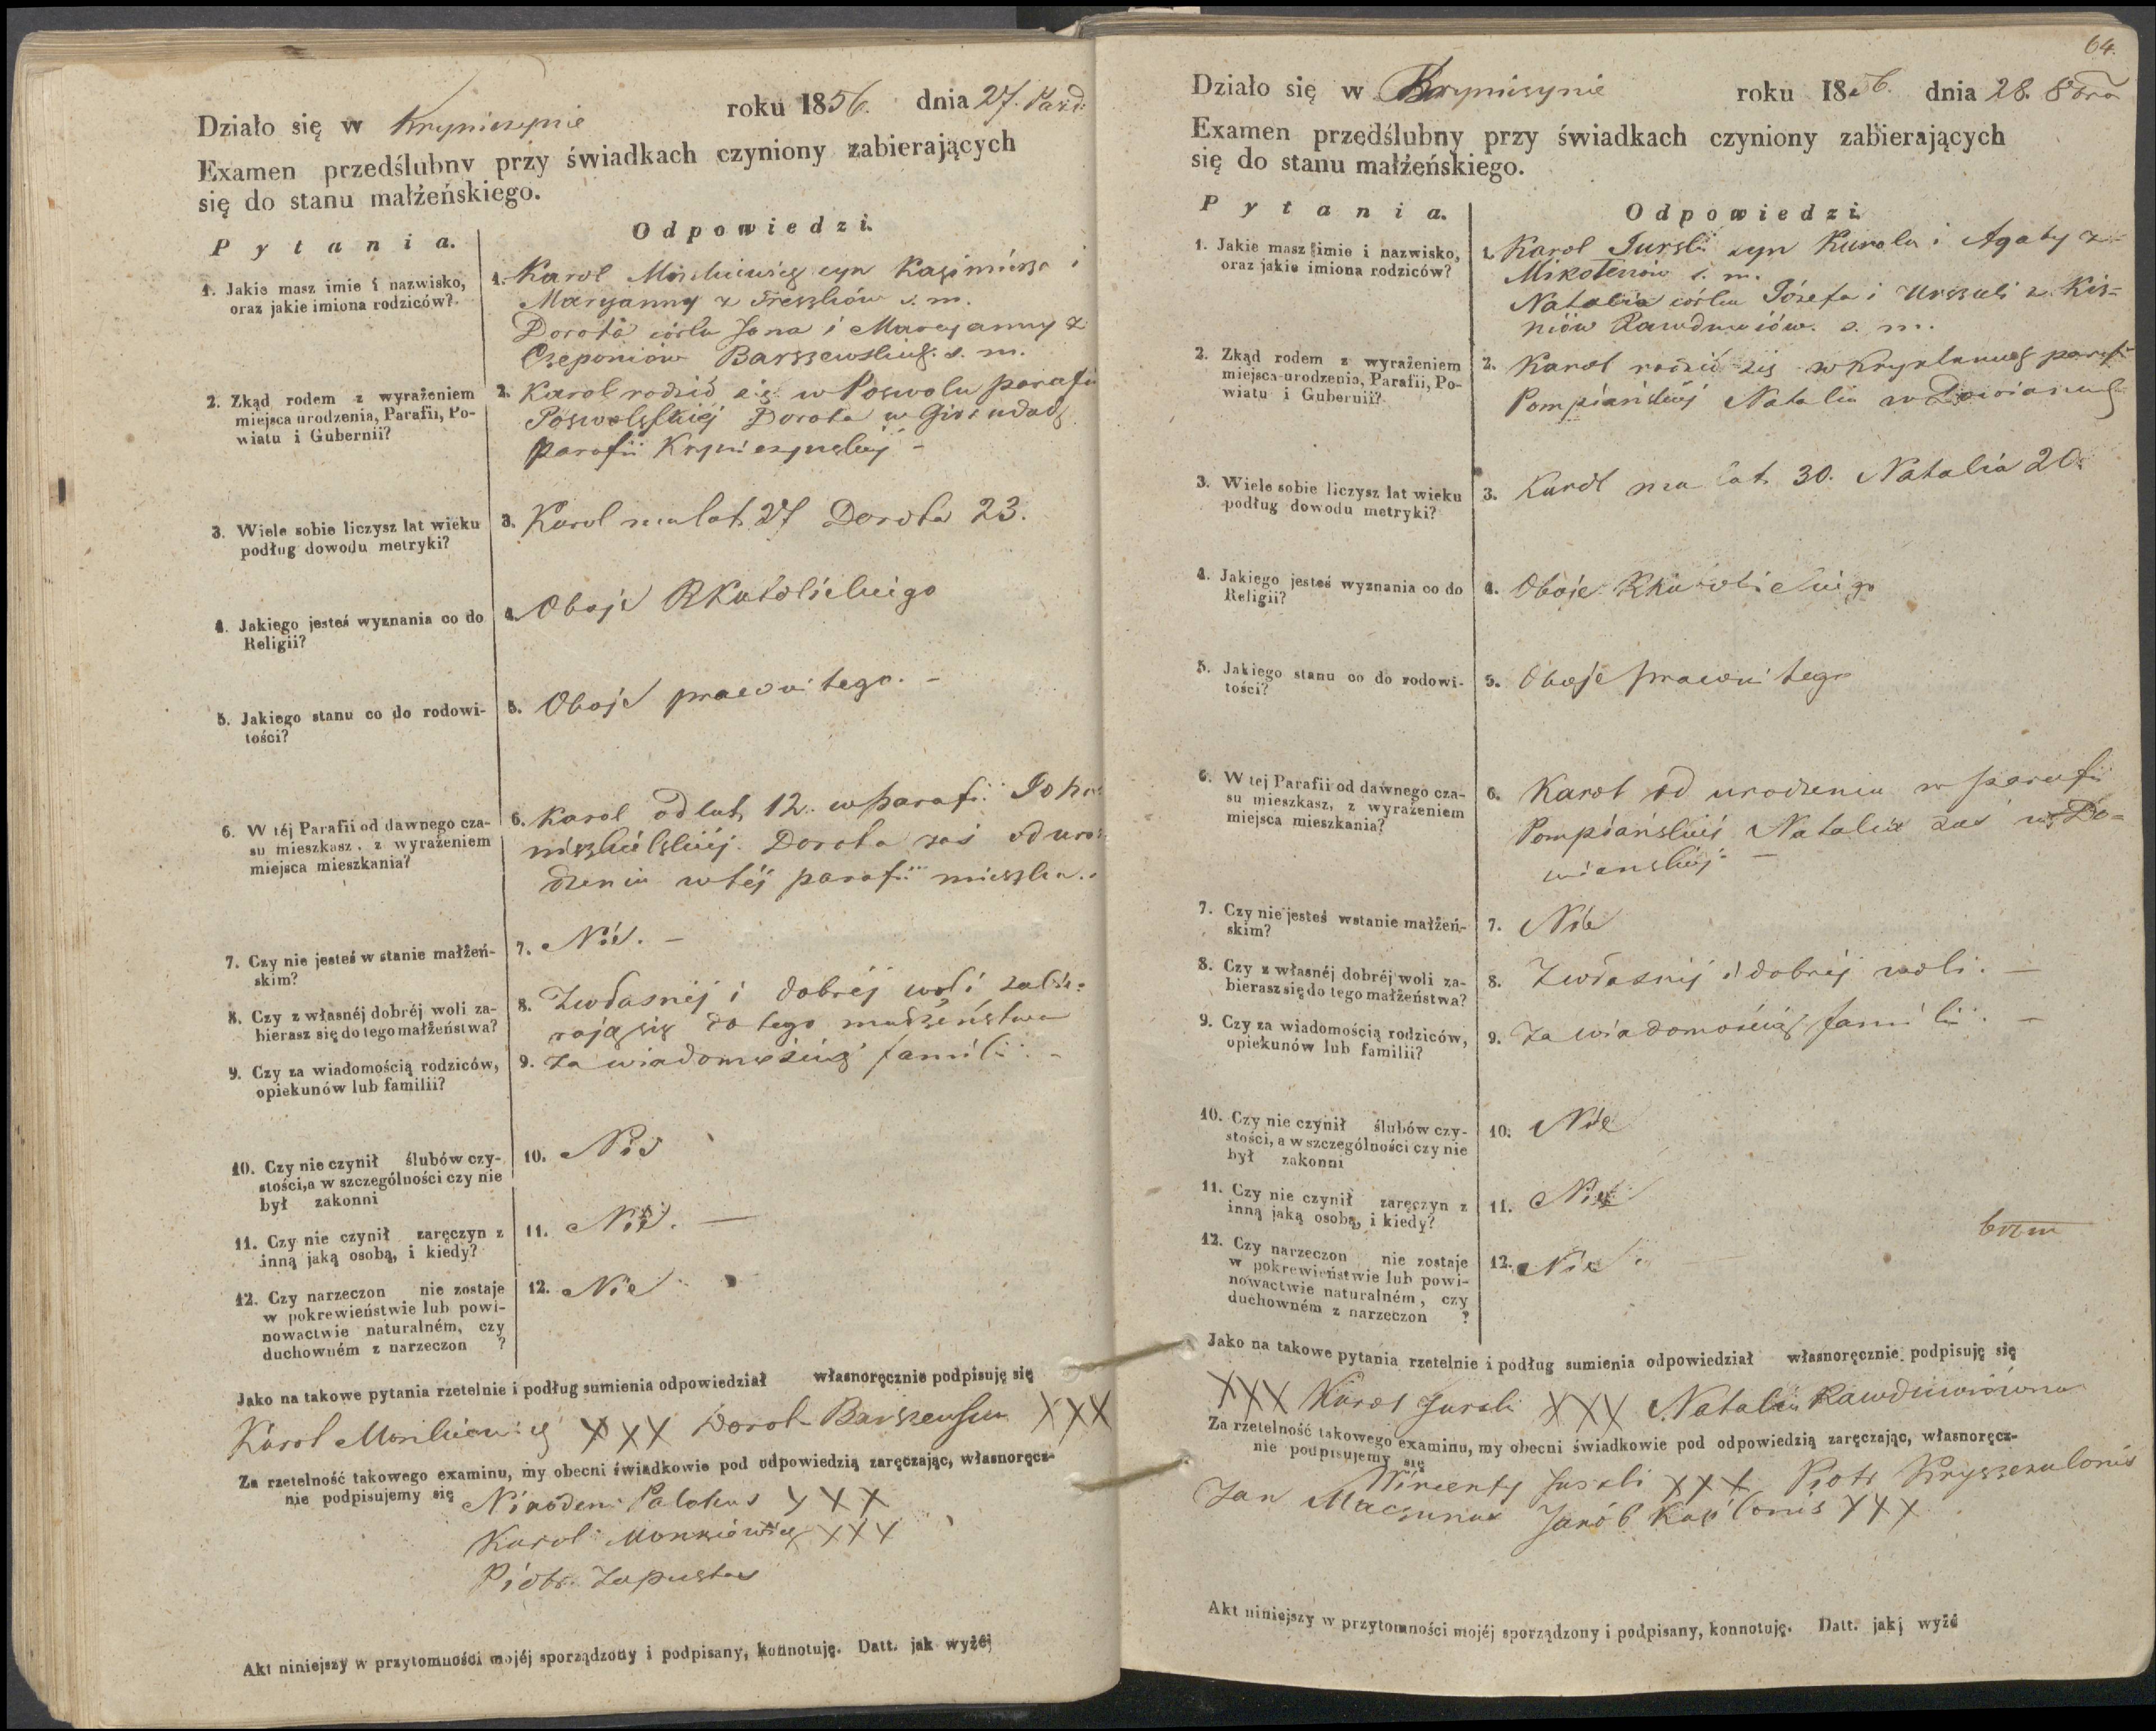 Działo się w Kryniczynie roku 1856. dnia 27. Pazd:
Examen przedślubny przy świadkach czyniony zabierających
się do stanu małżeńskiego.
Pytania.
Odpowiedzi.
1. Jakie masz imie i nazwisko,
oraz jakie imiona rodziców?
1. Karol syn Kazimierza i
Maryanny z s. m.
Dorota córka Jana i Maryanny z
Czeponiów s. m.
2. Zkąd rodem z wyrażeniem
miejsca urodzenia, Parafii, Po-
wiatu i Gubernii?
2. Karol rodził się w Poswolu parafii
Poswolskiej Dorota w
parafii
3. Wiele sobie liczysz lat wieku
podług dowodu metryki?
3. Karol ma lat 27 Dorota 23.
4. Jakiego jesteś wyznania co do
Religii?
4. Oboje RKatolickiego
5. Jakiego stanu co do rodowi-
tości?
5. Oboje prawowitego. -
6. W téj Parafii od dawnego cza-
su mieszkasz, z wyrażeniem
miejsca mieszkania?
6. Karol od lat 12. w parafii
Dorota zaś od uro
dzenia w téj parafii mieszka.
7. Czy nie jesteś w stanie małżeń-
skim?
7. Nie. -
8. Czy z własnéj dobréj woli za-
bierasz się do tego małżeństwa?
8. Z własnéj i dobréj woli zabie-
rają się do tego małżeństwa
9. Czy za wiadomością rodziców,
opiekunów lub familii?
9. Za wiadomością familii. -
10. Czy nie czynił ślubów czy-
stości, a w szczególności czy nie
był zakonni
10. Nie
11. Czy nie czynił zaręczyn z
inną jaką osobą, i kiedy?
11. Nie. —
12. Czy narzeczon nie zostaje
w pokrewieństwie lub powi-
nowactwie naturalném, czy
duchowném z narzeczon ?
12. Nie
Jako na takowe pytania rzetelnie i podług sumienia odpowiedział własnoręcznie podpisuję się
Karol XXX Dorot XXX
Za rzetelność takowego examinu, my obecni świadkowie pod odpowiedzią zaręczając, własnoręcz-
nie podpisujemy się XXX
Karol XXX
Piotr Zapustas
Akt niniejszy w przytomności mojéj sporządzony i podpisany, konnotuję. Datt. jak wyżéj
64.
Działo się w Krynicynie roku 1856. dnia 28. 8bra
Examen przedślubny przy świadkach czyniony zabierających
się do stanu małżeńskiego.
Pytania.
Odpowiedzi.
1. Jakie masz imie i nazwisko,
oraz jakie imiona rodziców?
1. Karol Jurski syn Karola i Agaty z
s. m.
Natalia córka Józefa i Urszuli z Kis-
niów s. m.
2. Zkąd rodem z wyrażeniem
miejsca urodzenia, Parafii, Po-
wiatu i Gubernii?
2. Karol rodził się w paraf.
Pompiańskiej Natalia w
3. Wiele sobie liczysz lat wieku
podług dowodu metryki?
3. Karol ma lat 30. Natalia 20.
4. Jakiego jesteś wyznania co do
Religii?
4. Oboje RKatolickiego
5. Jakiego stanu co do rodowi-
tości?
5. Oboje prawowitego
6. W tej Parafii od dawnego cza-
su mieszkasz, z wyrażeniem
miejsca mieszkania?
6. Karol od urodzenia w parafii
Pompiańskiej Natalia zaś w Po-
wianskiej. —
7. Czy nie jesteś wstanie małżeń-
skim?
7. Nie
8. Czy z własnéj dobréj woli za-
bierasz się do tego małżeństwa?
8. Z własnéj i dobréj woli. —
9. Czy za wiadomością rodziców,
opiekunów lub familii?
9. Za wiadomością familii. —
10. Czy nie czynił ślubów czy-
stości, a w szczególności czy nie
był zakonni
10. Nie
11. Czy nie czynił zaręczyn z
inną jaką osobą, i kiedy?
11. Nie
12. Czy narzeczon nie zostaje
w pokrewieństwie lub powi-
nowactwie naturalném, czy
duchowném z narzeczon ?
12. Nie
Jako na takowe pytania rzetelnie i podług sumienia odpowiedział własnoręcznie podpisuję się
XXX Karol Jurski XXX Natalia
Za rzetelność takowego examinu, my obecni świadkowie pod odpowiedzią zaręczając, własnoręcz-
nie podpisujemy się
Wincenty Jurski XXX Piotr
Jan Jakób XXX
Akt niniejszy w przytomności mojéj sporządzony i podpisany, konnotuję. Datt. jak wyżé